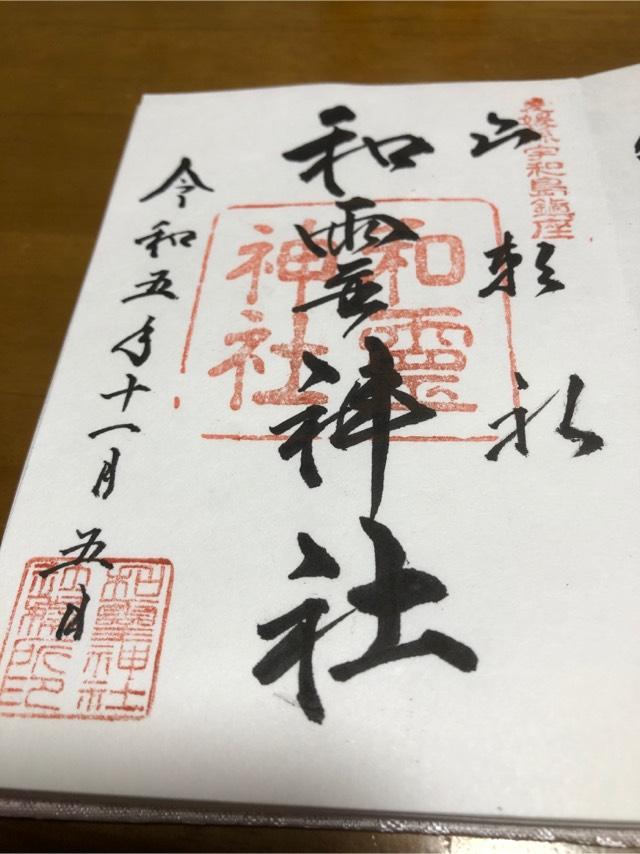 愛媛県宇和島鎮座
和霊神社
和霊神社
令和五年十一月五日
和霊神社
社務所印